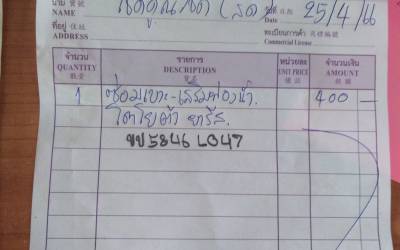 นาม 寶號
NAME
วันที่ 日期
Date 25/4/66
ที่อยู่ 住址
ADDRESS
ทะเบียนการค้า 商標編號
Commercial License
จำนวน QUANTITY 數量 รายการ DESCRIPTION 貨名 หน่วยละ UNIT PRICE 價目 จำนวนเงิน AMOUNT 銀碼
1 ซ่อมเบาะ-เสริมฟองน้ำ 400 —
โตโยต้า ยาริส.
5846 L047